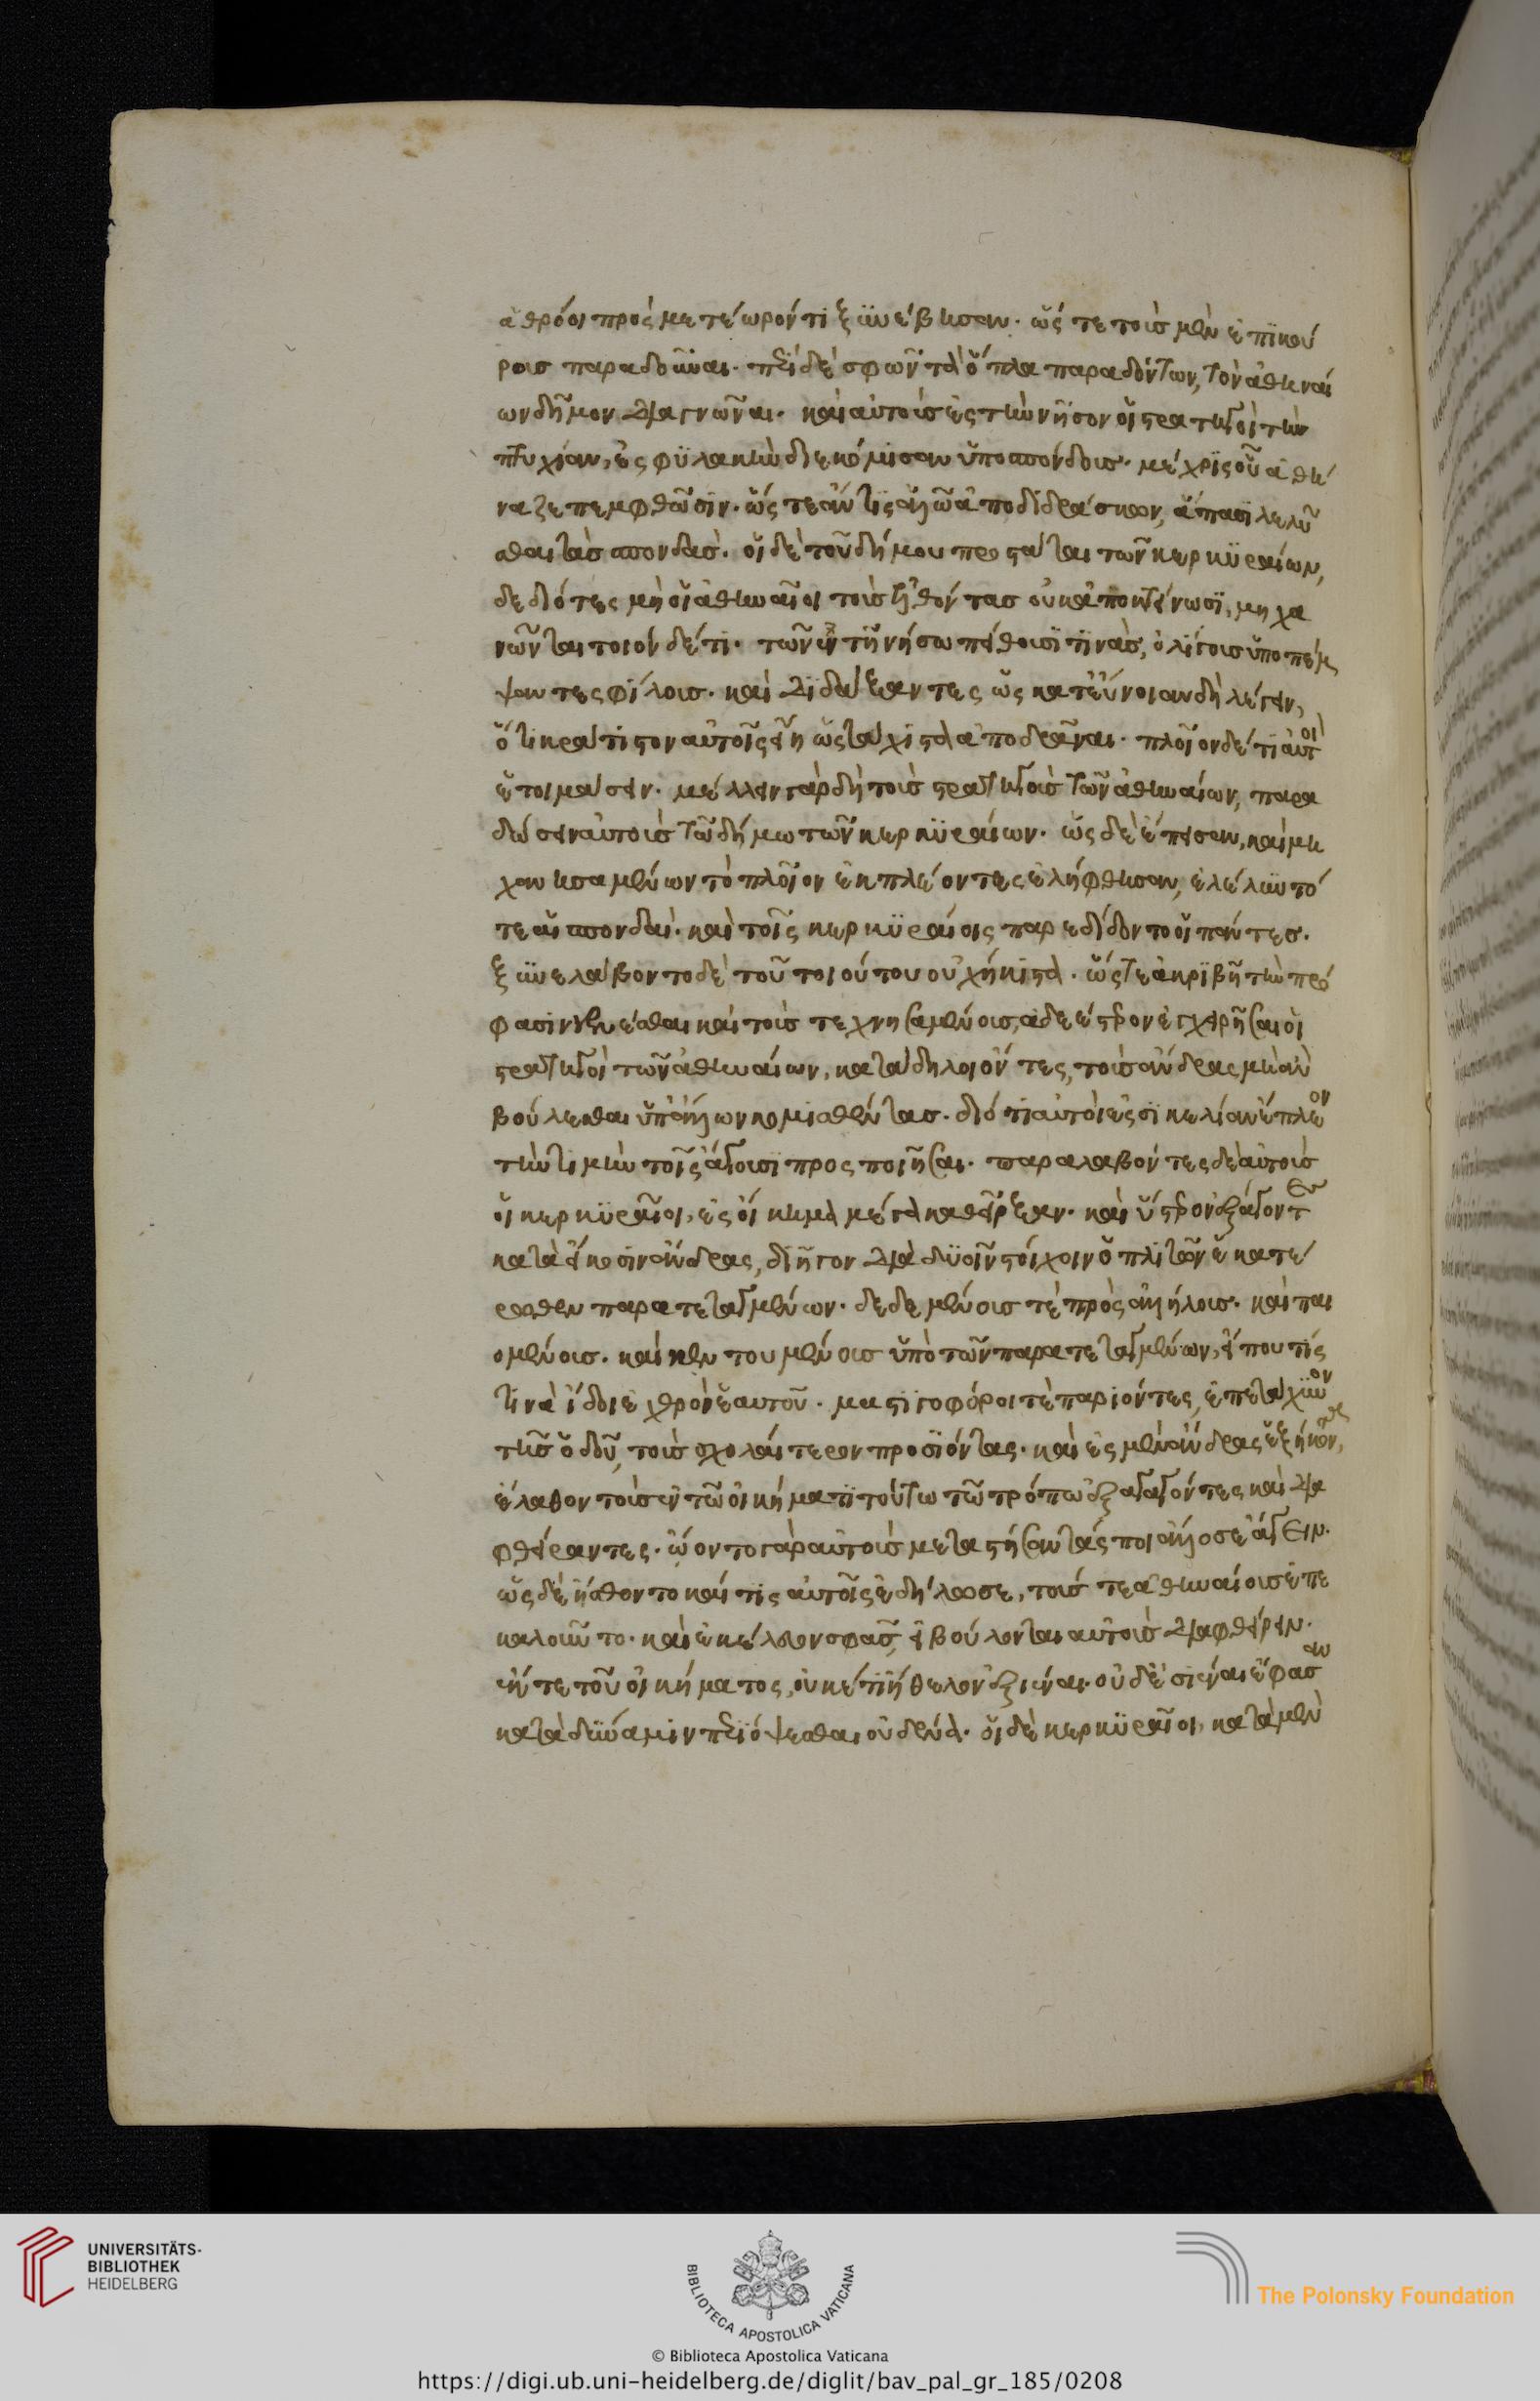 ἀθρόοι πρὸς μετέωρόν τι ξυνέβησαν. ὥστε τοὺς μὲν ἐπικού
ρους παραδοῦναι. περὶ δὲ σφῶν τὰ ὅπλα παραδόντων, τὸν ἀθηναί
ων δῆμον διαγνῶναι. καὶ αὐτοὺς ἐς τὴν νῆσον οἱ στρατηγοὶ τὴν
πτυχίαν, ἐς φυλακὴν διεκόμισαν ὑποσπόνδους. μέχρις οὗ ἀθή
ναζε πεμφθῶσιν. ὥστε ἄν τις ἁλῶ ἀποδιδράσκων, ἅπασι λελύ
σθαι τὰς σπονδάς. οἱ δὲ τοῦ δήμου προστάται τῶν κερκυραίων,
δεδιότες μὴ οἱ ἀθηναῖοι τοὺς ἐλθόντας οὐκ ἀποκτείνωσι, μηχα
νῶνται τοιόνδέ τι. τῶν ἐν τῇ νήσω πείθουσί τινας, ὀλίγους ὑποπέμ
ψαντες φίλους. καὶ διδάξαντες ὡς κατ' εὔνοιαν δὴ λέγειν,
ὅτι κράτιστον αὐτοῖς εἴη ὡς τάχιστα ἀποδρᾶναι. πλοῖον δέ τι αὐτοὶ
ἑτοιμάσειν. μέλλειν γὰρ δὴ τοὺς στρατηγοὺς τῶν ἀθηναίων, παρα
δώσειν αὐτοὺς τῶ δήμω τῶν κερκυραίων. ὡς δὲ ἔπεισαν, καὶ μη
χανησαμένων τὸ πλοῖον ἐκπλέοντες ἐλήφθησαν, ἐλέλυντό
τε αἱ σπονδαί. καὶ τοῖς κερκυραίοις παρεδίδοντο οἱ πάντες.
ξυνελάβοντο δὲ τοῦ τοιούτου οὐχ ἥκιστα. ὥστε ἀκριβῆ τὴν πρό
φασιν γενέσθαι καὶ τοὺς τεχνησαμένους, ἀδεέστερον ἐγχειρῆσαι οἱ
στρατηγοὶ τῶν ἀθηναίων, κατάδηλοι ὄντες, τοὺς ἄνδρας μὴ ἂν
βούλεσθαι ὑπ' ἄλλων κομισθέντας. διότι αὐτοὶ ἐς σικελίαν ἔπλεον
τὴν τιμὴν τοῖς ἄγουσι προσποιῆσαι. παραλαβόντες δὲ αὐτοὺς
οἱ κερκυραῖοι, ἐς οἴκημα μέγα κατεῖρξαν. καὶ ὕστερον ἐξάγοντες
κατὰ εἴκοσιν ἄνδρας, διῆγον διὰ δυοῖν στοίχοιν ὁπλιτῶν ἑκατέ
ρωθεν παρατεταγμένων. δεδεμένους τὲ πρὸς ἀλλήλους. καὶ παι
ομένους. καὶ κεντουμένους ὑπὸ τῶν παρατεταγμένων, εἴ που τίς
τινὰ ἴδοι ἐχθρὸν ἑαυτοῦ. μαστιγοφόροι τὲ παριόντες, ἐπετάχυνον
τῆς ὁδοῦ, τοὺς σχολαίτερον προσιόντας. καὶ ἐς μὲν ἄνδρας ἑξήκοντα,
ἔλαθον τοὺς ἐν τῶ οἰκήματι τούτω τῶ τρόπω ἐξαγαγόντες καὶ δια
φθείραντες. ὤοντο γὰρ αὐτοὺς μεταστήσαντάς ποι ἄλλοσε ἄγειν.
ὡς δὲ ἤσθοντο καί τις αὐτοῖς ἐδήλωσε, τούς τε ἀθηναίους ἐπε
καλοῦντο. καὶ ἐκέλευον σφᾶς, εἰ βούλονται αὐτοὺς διαφθείρειν.
ἔκ τε τοῦ οἰκήματος, οὐκέτι ἤθελον ἐξιέναι. οὐδ' ἐσιέναι ἔφασαν
κατὰ δύναμιν περιόψεσθαι οὐδένα. οἱ δὲ κερκυραῖοι, κατὰ μὲν
UNIVERSITÄTS-
BIBLIOTHEK
HEIDELBERG
BIBLIOTECA APOSTOLICA VATICANA
The Polonsky Foundation
© Biblioteca Apostolica Vaticana
https://digi.ub.uni-heidelberg.de/diglit/bav_pal_gr_185/0208